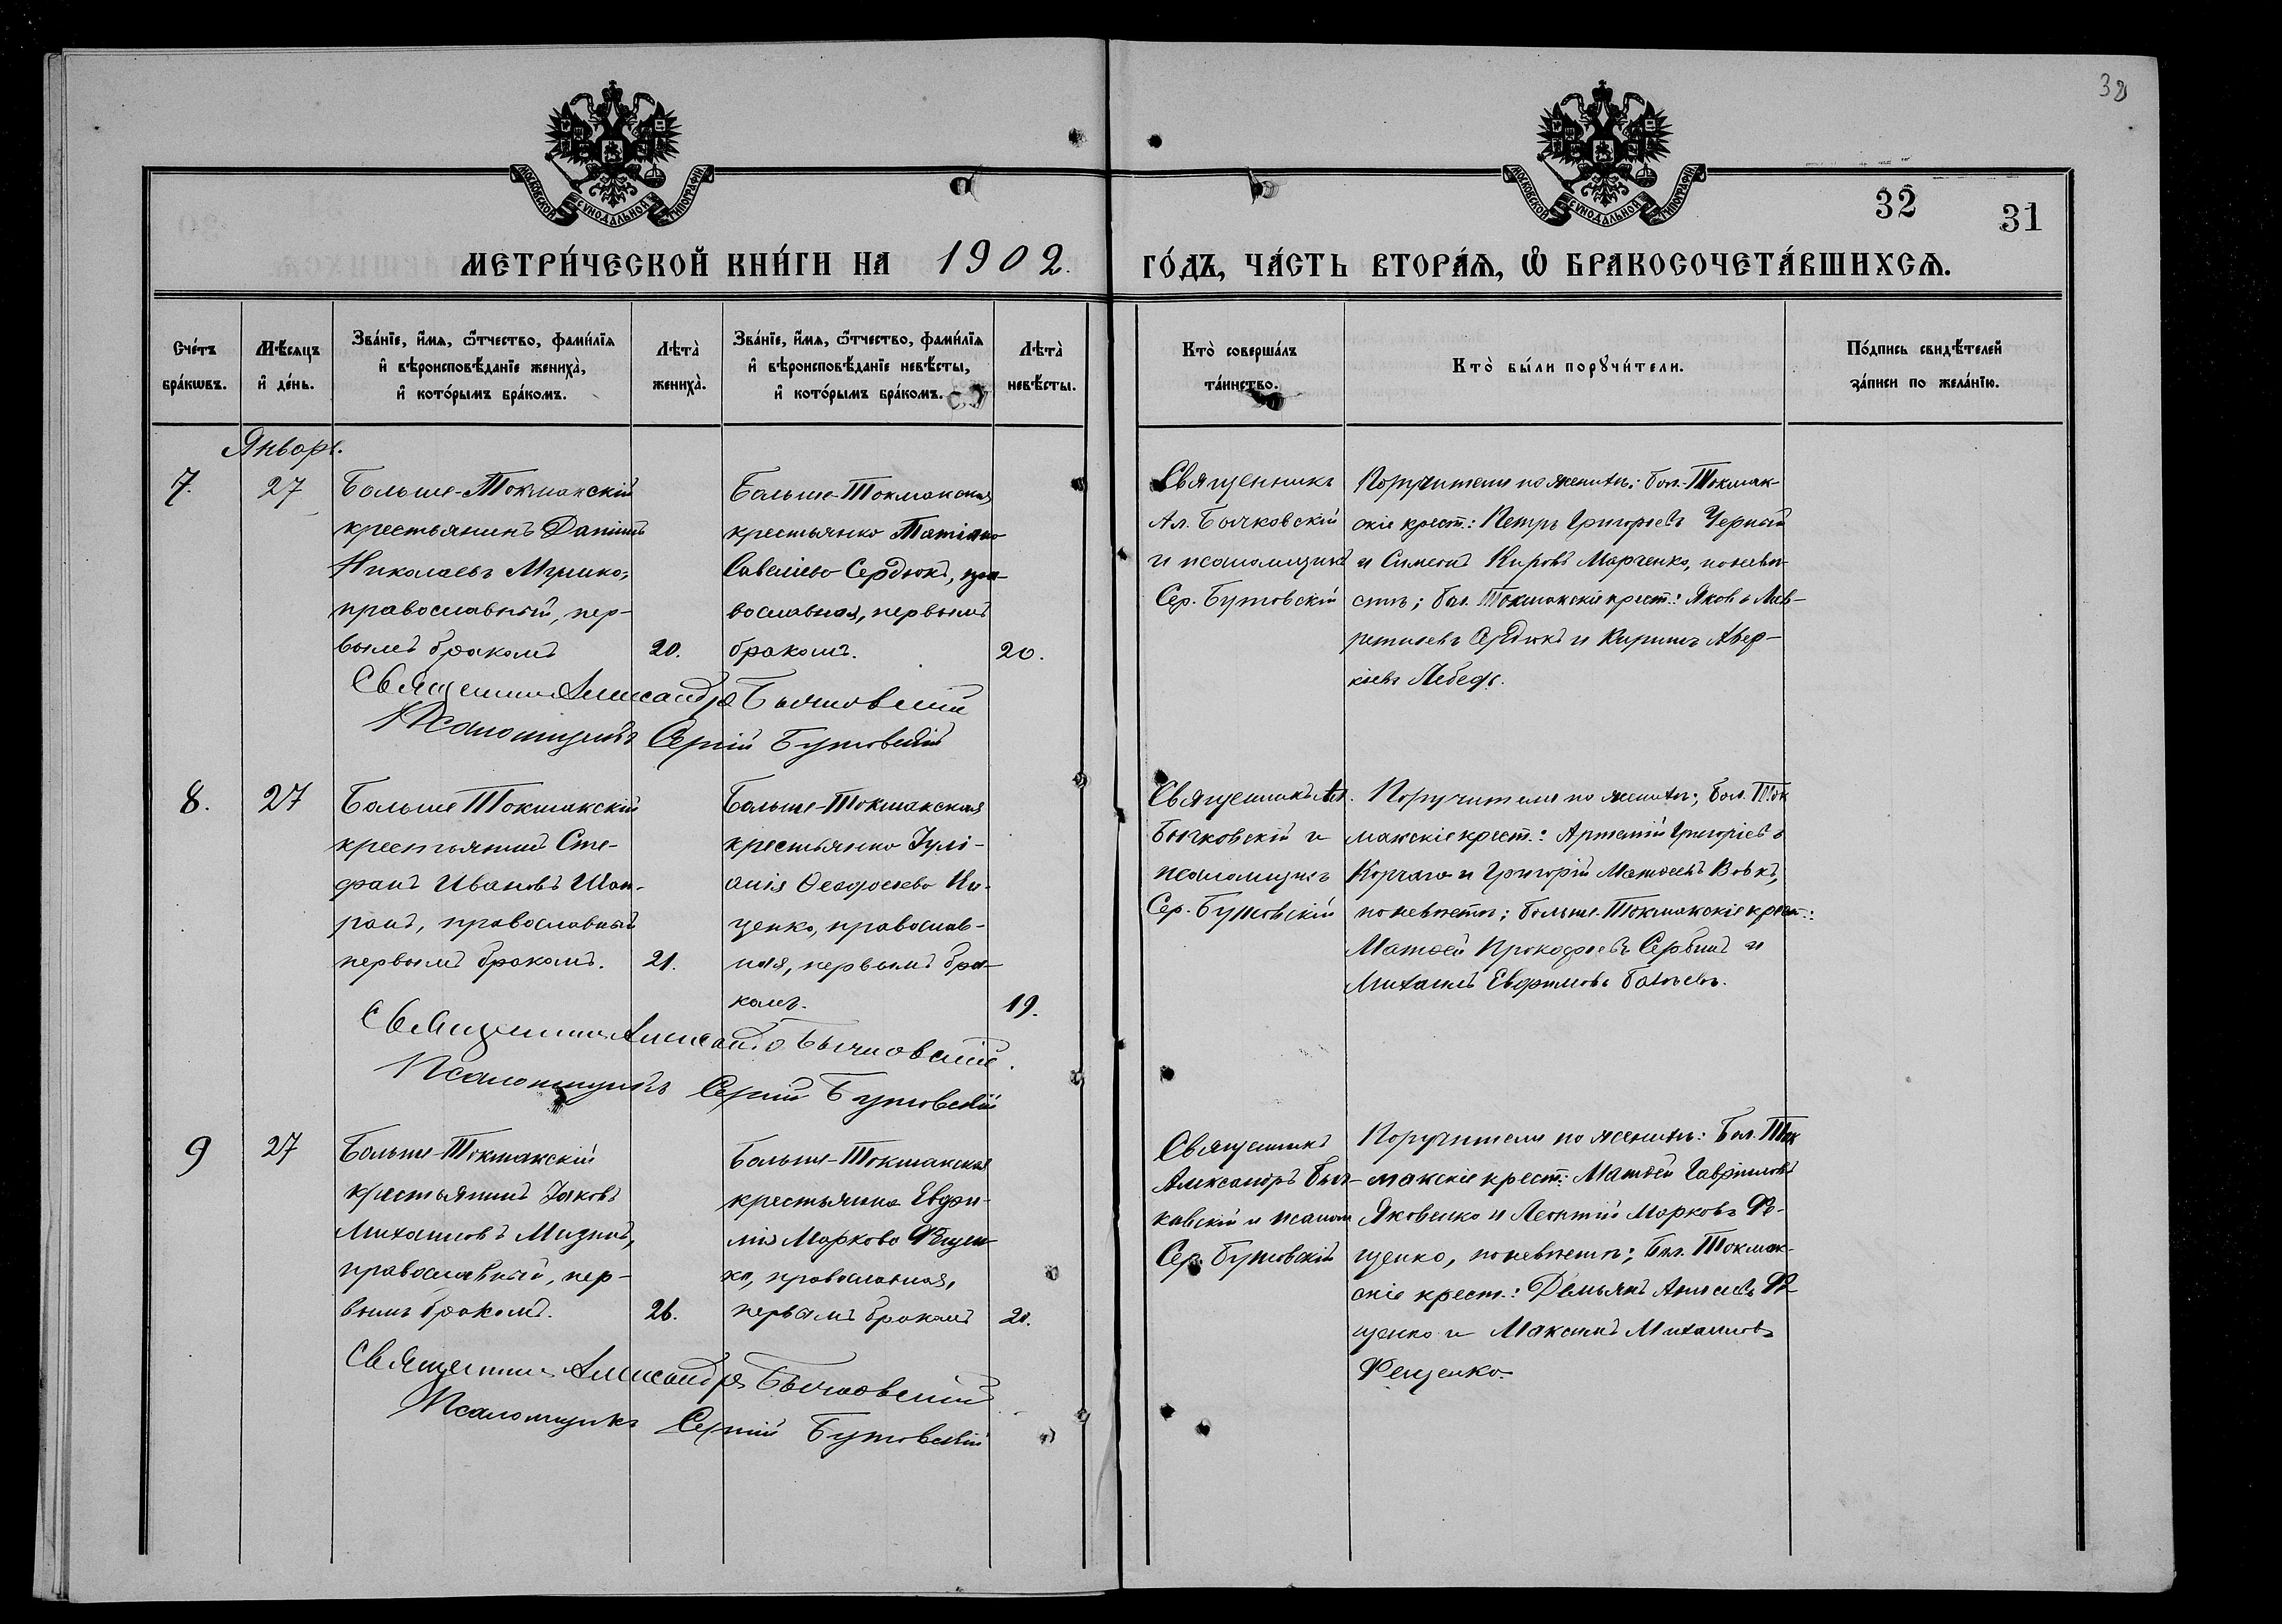 32
МОСКОВСКОЙ СѴНОДАЛЬНОЙ ТИПОГРАФІИ
МОСКОВСКОЙ СѴНОДАЛЬНОЙ ТИПОГРАФІИ
32
31
МЕТРИ́ЧЕСКОЙ КНИ́ГИ НА 1902. ГО́ДЪ, ЧА́СТЬ ВТОРА́Ѧ, Ѽ БРАКОСОЧЕТА́ВШИХСѦ.
Сче́тъ бра́кѡвъ.
Мѣ́сяцъ и҆ де́нь.
Зва́нїе, и҆́мѧ, ѻ҆́тчество, фами́лїѧ
и҆ вѣроисповѣ́данїе жениха̀,
и҆ кото́рымъ бра́комъ.
Лѣта̀ жениха̀.
Зва́нїе, и҆́мѧ, ѻ҆́тчество, фами́лїѧ
и҆ вѣроисповѣ́данїе невѣ́сты,
и҆ кото́рымъ бра́комъ.
Лѣта̀ невѣ́сты.
Кто̀ соверша́лъ
та́инство.
Кто̀ бы́ли порꙋчи́тели.
По́дпись свидѣ́телей
за́писи по жела́нїю.
Январь.
7.
27
Больше-Токмакскій
крестьянинъ Даніилъ
Николаевъ
православный, пер-
вымъ бракомъ
20.
Больше-Токмакская
крестьянка Татіана
Савеліева Сердюкъ, пра-
вославная, первымъ
бракомъ.
20.
Священникъ
Ал. Бычковскій
и псаломщикъ
Сер. Бутовскій
Поручители по женихѣ: бол.-Токмак-
скіе крест.: Петръ Григорьевъ Черный
и Симеонъ Кировъ Марченко, по невѣ-
стѣ; бол. Токмакскіе крест.: Яковъ Лав-
рентіевъ Сердюкъ и Кириллъ Авер-
кіевъ Лебедь.
Священникъ Александръ Бычковскій
Псаломщикъ Сергій Бутовскій
8.
27
Больше Токмакскій
крестьянинъ Сте-
фанъ Ивановъ Шап-
ранъ, православный
первымъ бракомъ.
21.
Больше-Токмакская
крестьянка Іулі-
анія Ѳеодосіева
ценко, православ-
ная, первымъ бра-
комъ.
19.
Священникъ Ал.
Бычковскій и
псаломщикъ
Сер. Бутовскій
Поручители по женихѣ; бол. Ток
макскіе крест.: Артемій Григоріевъ
Корчага и Григорій Матѳеевъ Вовкъ,
по невѣстѣ; больше-Токмакскіе крест.:
Матѳей Прокофьевъ Сербинъ и
Михаилъ Евфимовъ
Священникъ Александръ Бычковскій.
Псаломщикъ Сергій Бутовскій
9
27
Больше-Токмакскій
крестьянинъ Іаковъ
Михаиловъ
православный, пер-
вымъ бракомъ.
26.
Больше-Токмакская
крестьянка Евфи-
мія Маркова Фещен-
ко, православная,
первымъ бракомъ
Священникъ
Александръ Быч-
ковскій и псалом
Сер. Бутовскій
Поручители по женихѣ: Бол. Ток
макскіе крест.: Матѳей Гавріиловъ
Яковенко и Леонтій Марковъ Фе-
щенко, по невѣстѣ; Бол. Токмак-
скіе крест.: Демьянъ Фе-
щенко и Максимъ Михаиловъ
Фещенко.
Священникъ Александръ Бычковскій
Псаломщикъ Сергій Бутовскій